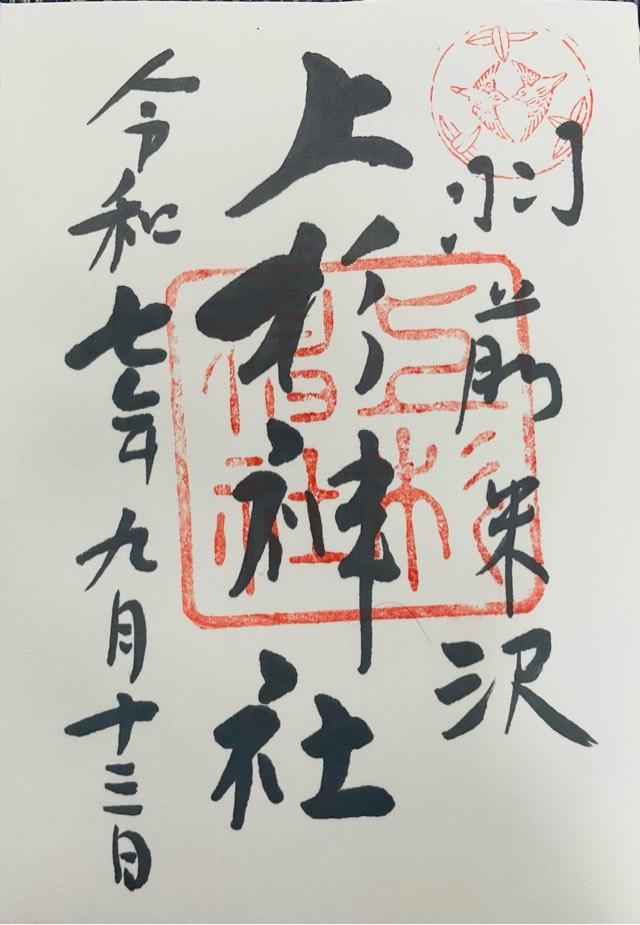 羽前米沢
上杉神社
令和七年九月十三日
上杉神社